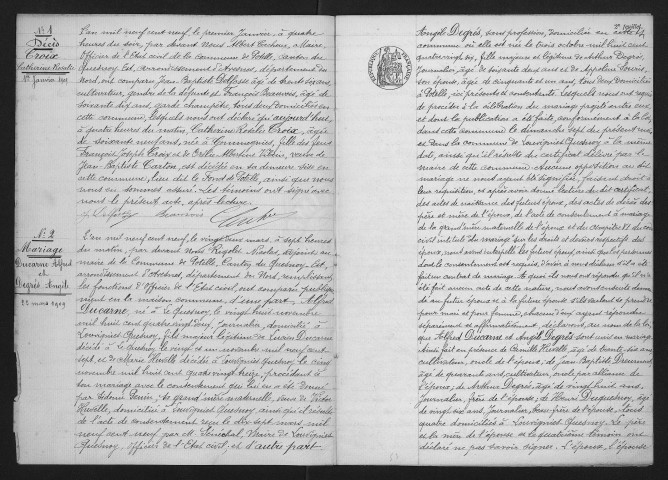 N° 1
Décès
Croix
Catherine Rosalie
1er Janvier 1909
L'an mil neuf cent neuf, le premier Janvier, à quatre
heures du soir, par devant Nous Albert Cochaux, Maire,
Officier de l'Etat civil de la Commune de Potelle, canton du
Quesnoy Est, arrondissement d'Avesnes, département du
Nord, ont comparu Jean Baptiste âgé de trente six ans
cultivateur, gendre de la défunte et François Beauvois, âgé de
soixante dix ans, garde champêtre, tous deux domiciliés en
cette commune, lesquels nous ont déclaré qu'aujourd'hui
à quatre heures du matin, Catherine Rosalie Croix, âgée
de soixante neuf ans, née à Gommegnies, fille des feus
François Joseph Croix et de Albertine veuve de
Jean Baptiste Carton, est décédée en sa demeure sise en
cette commune, lieu dit le Fond de Potelle, ainsi que nous
nous en sommes assuré. Les témoins ont signé avec
nous le présent acte, après lecture.
Beauvois
N° 2
Mariage
Ducarne Alfred
et
Degrès Angèle
22 mars 1909
L'an mil neuf cent neuf, le vingt deux mars, à sept heures
du matin, par devant Nous Rigolé Nicolas, adjoint au
maire de la Commune de Potelle, Canton du Quesnoy Est,
arrondissement d'Avesnes, département du Nord, remplissant
les fonctions d'Officier de l'Etat civil, ont comparu publique
ment en la maison commune, d'une part, Alfred
Ducarne, né à le Quesnoy, le vingt huit novembre
mil huit cent quatre vingt six, journalier, domicilié à
Louvignies Quesnoy, fils majeur légitime de Lucien Ducarne
décédé à le Quesnoy, le mil neuf cent
sept, et de Marie Huvelle décédée à Louvignies Quesnoy, le cinq
novembre mil huit cent quatre vingt treize, procédant à
son mariage avec le consentement que lui en a été donné
par sa grand'mère maternelle, veuve de Victor
Huvelle, domiciliée à Louvignies Quesnoy, ainsi qu'il résulte
de l'acte de consentement reçu le dix sept mars mil
neuf cent neuf par Mr Sénéchal, Maire de Louvignies
Quesnoy, officier de l'Etat civil, et d'autre part
2e feuillet
Angèle Degrès, sans profession, domiciliée en cette
commune où elle est née le trois octobre mil huit cent
quatre vingt six, fille majeure et légitime de Arthur Degrès,
journalier, âgé de soixante deux ans et de
son épouse, âgée de cinquante et un ans, tous deux domiciliés
à Potelle, ici présents et consentants. Lesquels nous ont requis
de procéder à la célébration du mariage projeté entre eux
et dont la publication a été faite, conformément à la loi,
dans cette commune le dimanche sept du présent mois
et dans la Commune de Louvignies Quesnoy à la même
date, ainsi qu'il résulte du certificat délivré par le
maire de cette commune. Aucune opposition au dit
mariage ne nous ayant été signifiée, faisant droit à
leur réquisition, et après avoir donné lecture du dit certificat,
des actes de naissance des futurs époux, des actes de décès des
père et mère de l'époux, de l'acte de consentement à mariage
de la grand'mère maternelle de l'époux et du chapitre VI du code
civil intitulé du mariage sur les droits et devoirs respectifs des
époux, nous avons interpellé les futurs époux, ainsi que les personnes
dont le consentement est requis, d'avoir à nous déclarer s'il a été
fait un contrat de mariage. A quoi ils nous ont répondu qu'il n'a
été fait aucun acte de cette nature, nous avons ensuite demandé
au futur époux et à la future épouse s'ils veulent se prendre
pour mari et pour femme, chacun d'eux ayant répondu
séparément et affirmativement, déclarons, au nom de la loi,
que Alfred Ducarne et Angèle Degrès sont unis en mariage
Ainsi fait en présence de Camille Huvelle, âgé de trente six ans,
cultivateur, oncle de l'époux, de Jean Baptiste
âgé de quarante ans, cultivateur, oncle par alliance de
l'époux, de Arthur Degrès, âgé de vingt huit ans,
journalier, frère de l'épouse, de Henri Duquesnoy, âgé
de vingt six ans, journalier, beau-frère de l'épouse, tous
quatre domiciliés à Louvignies Quesnoy. Le père
et la mère de l'épouse et le quatrième témoin ont
déclaré ne pas savoir signer. L'époux, l'épouse